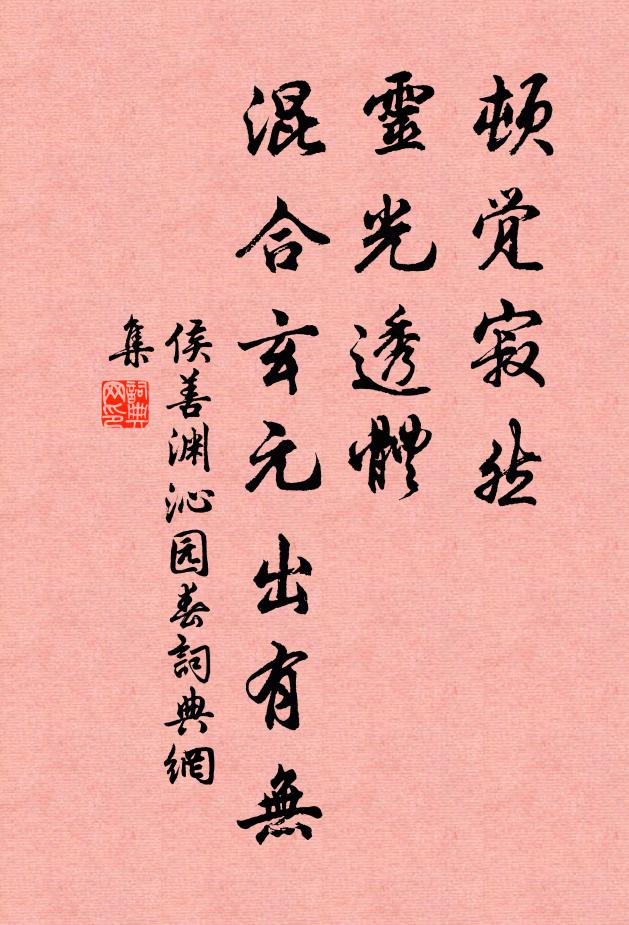 顿觉寂然
靈光透體
混合玄元出有無
侯善渊沁园春詞典網
集
詞典
网印